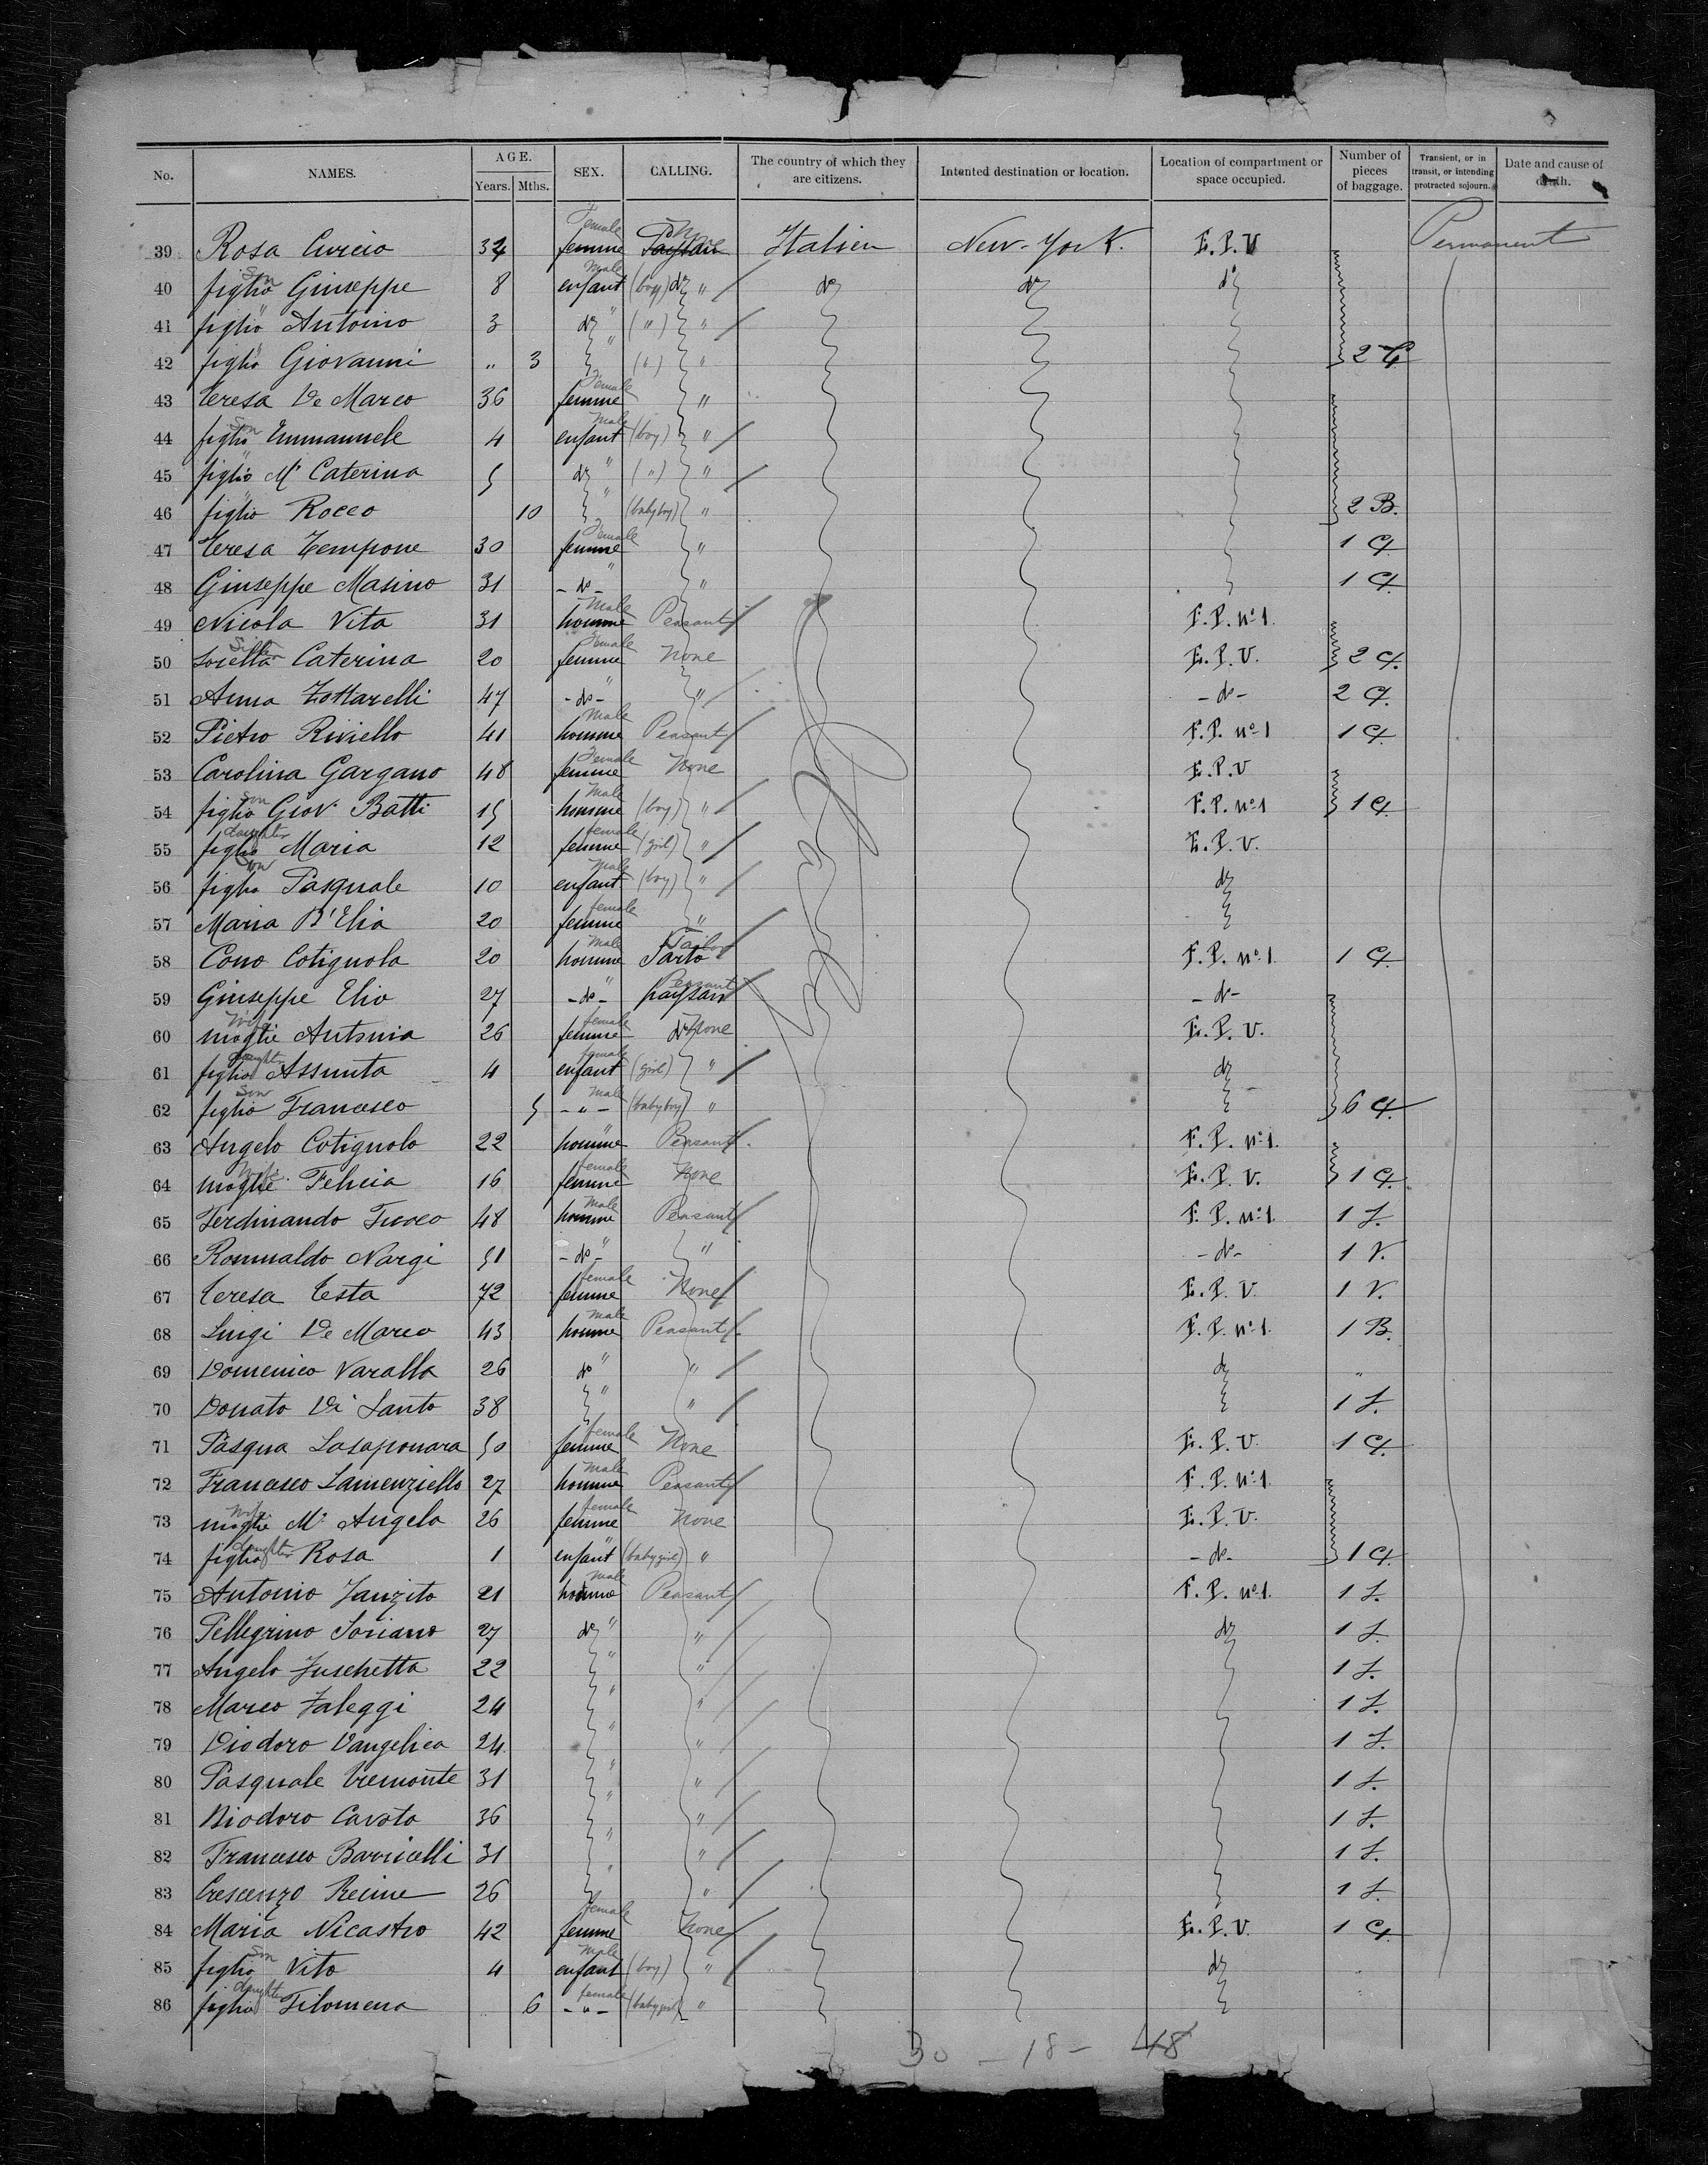 No. NAMES. AGE. Years. Mths. SEX. CALLING. The country of which they are citizens. Intented destination or location. Location of compartment or space occupied. Number of pieces of baggage. Transient, or in transit, or intending protracted sojourn. Date and cause of death.
39 Rosa Curcio 34 Female femme None Paysan Italien New-York. E.P.V Permanent
40 figlio Son Giuseppe 8 enfant Male (boy) do " do do do
41 figlio " Antonio 3 do " (") "
42 figlio " Giovanni " 3 " (") " 2 C
43 Teresa De Marco 36 femme Female "
44 figlio Son Emmanuele 4 enfant Male (boy) "
45 figlio " Mª Caterina 5 do " (") "
46 figlio " Rocco 10 " (baby boy) " 2 B.
47 Teresa Tempone 30 femme Female " 1 C.
48 Giuseppe Masino 31 -do- " " 1 C.
49 Nicola Vita 31 homme Male Peasant F.P. Nº1.
50 Sorella Sister Caterina 20 femme Female None E.P.V. 2 C.
51 Anna Zottarelli 47 -do- " " -do- 2 C.
52 Pietro Riviello 41 homme Male Peasant F.P. Nº1 1 C.
53 Carolina Gargano 48 femme Female None E.P.V
54 figlio Son Giov. Batti 15 homme Male (boy) " F.P. Nº1 1 C.
55 figlia daughter Maria 12 femme female (girl) " E.P.V.
56 figlio Son Pasquale 10 enfant Male (boy) " do
57 Maria D'Elia 20 femme female "
58 Cono Cotignola 20 homme Male Sarto Tailor F.P. Nº1. 1 C.
59 Giuseppe Elio 27 -do- " paysan Peasant -do-
60 moglie Wife Antonia 26 femme female do None E.P.V.
61 figlia daughter Assunta 4 enfant female (girl) " do
62 figlio Son Francesco 5 - " - Male (baby boy) " 6 C.
63 Angelo Cotignolo 22 homme " Peasant F.P. Nº1.
64 moglie Wife Felicia 16 femme female None E.P.V. 1 C.
65 Ferdinando Fuoco 48 homme Male Peasant F.P. Nº1. 1 S.
66 Romualdo Nargi 51 -do- " " -do- 1 V.
67 Teresa Testa 72 femme female None E.P.V. 1 V.
68 Luigi De Marco 43 homme Male Peasant F.P. Nº1. 1 B.
69 Domenico Varalla 26 do " " do "
70 Donato Di Santo 38 " " 1 S.
71 Pasqua Lasaponara 50 femme female None E.P.V. 1 C.
72 Francesco Lamenziello 27 homme Male Peasant F.P. Nº1.
73 moglie Wife Mª Angela 26 femme female None E.P.V.
74 figlia daughter Rosa 1 enfant " (baby girl) " -do- 1 C.
75 Antonio Zanzito 21 homme Male Peasant F.P. Nº1. 1 S.
76 Pellegrino Soriano 27 do " " do 1 S.
77 Angelo Zuschetta 22 " " 1 S.
78 Marco Zaleggi 24 " " 1 S.
79 Diodoro Vangelica 24 " " 1 S.
80 Pasquale Tremonte 31 " " 1 S.
81 Diodoro Cavoto 36 " " 1 S.
82 Francesco Barricelli 31 " " 1 S.
83 Crescenzo Recine 26 " " 1 S.
84 Maria Nicastro 42 femme female None E.P.V. 1 C.
85 figlio Son Vito 4 enfant Male (boy) " do
86 figlia daughter Filomena 6 - " - female (baby girl) "
30 - 18 - 48